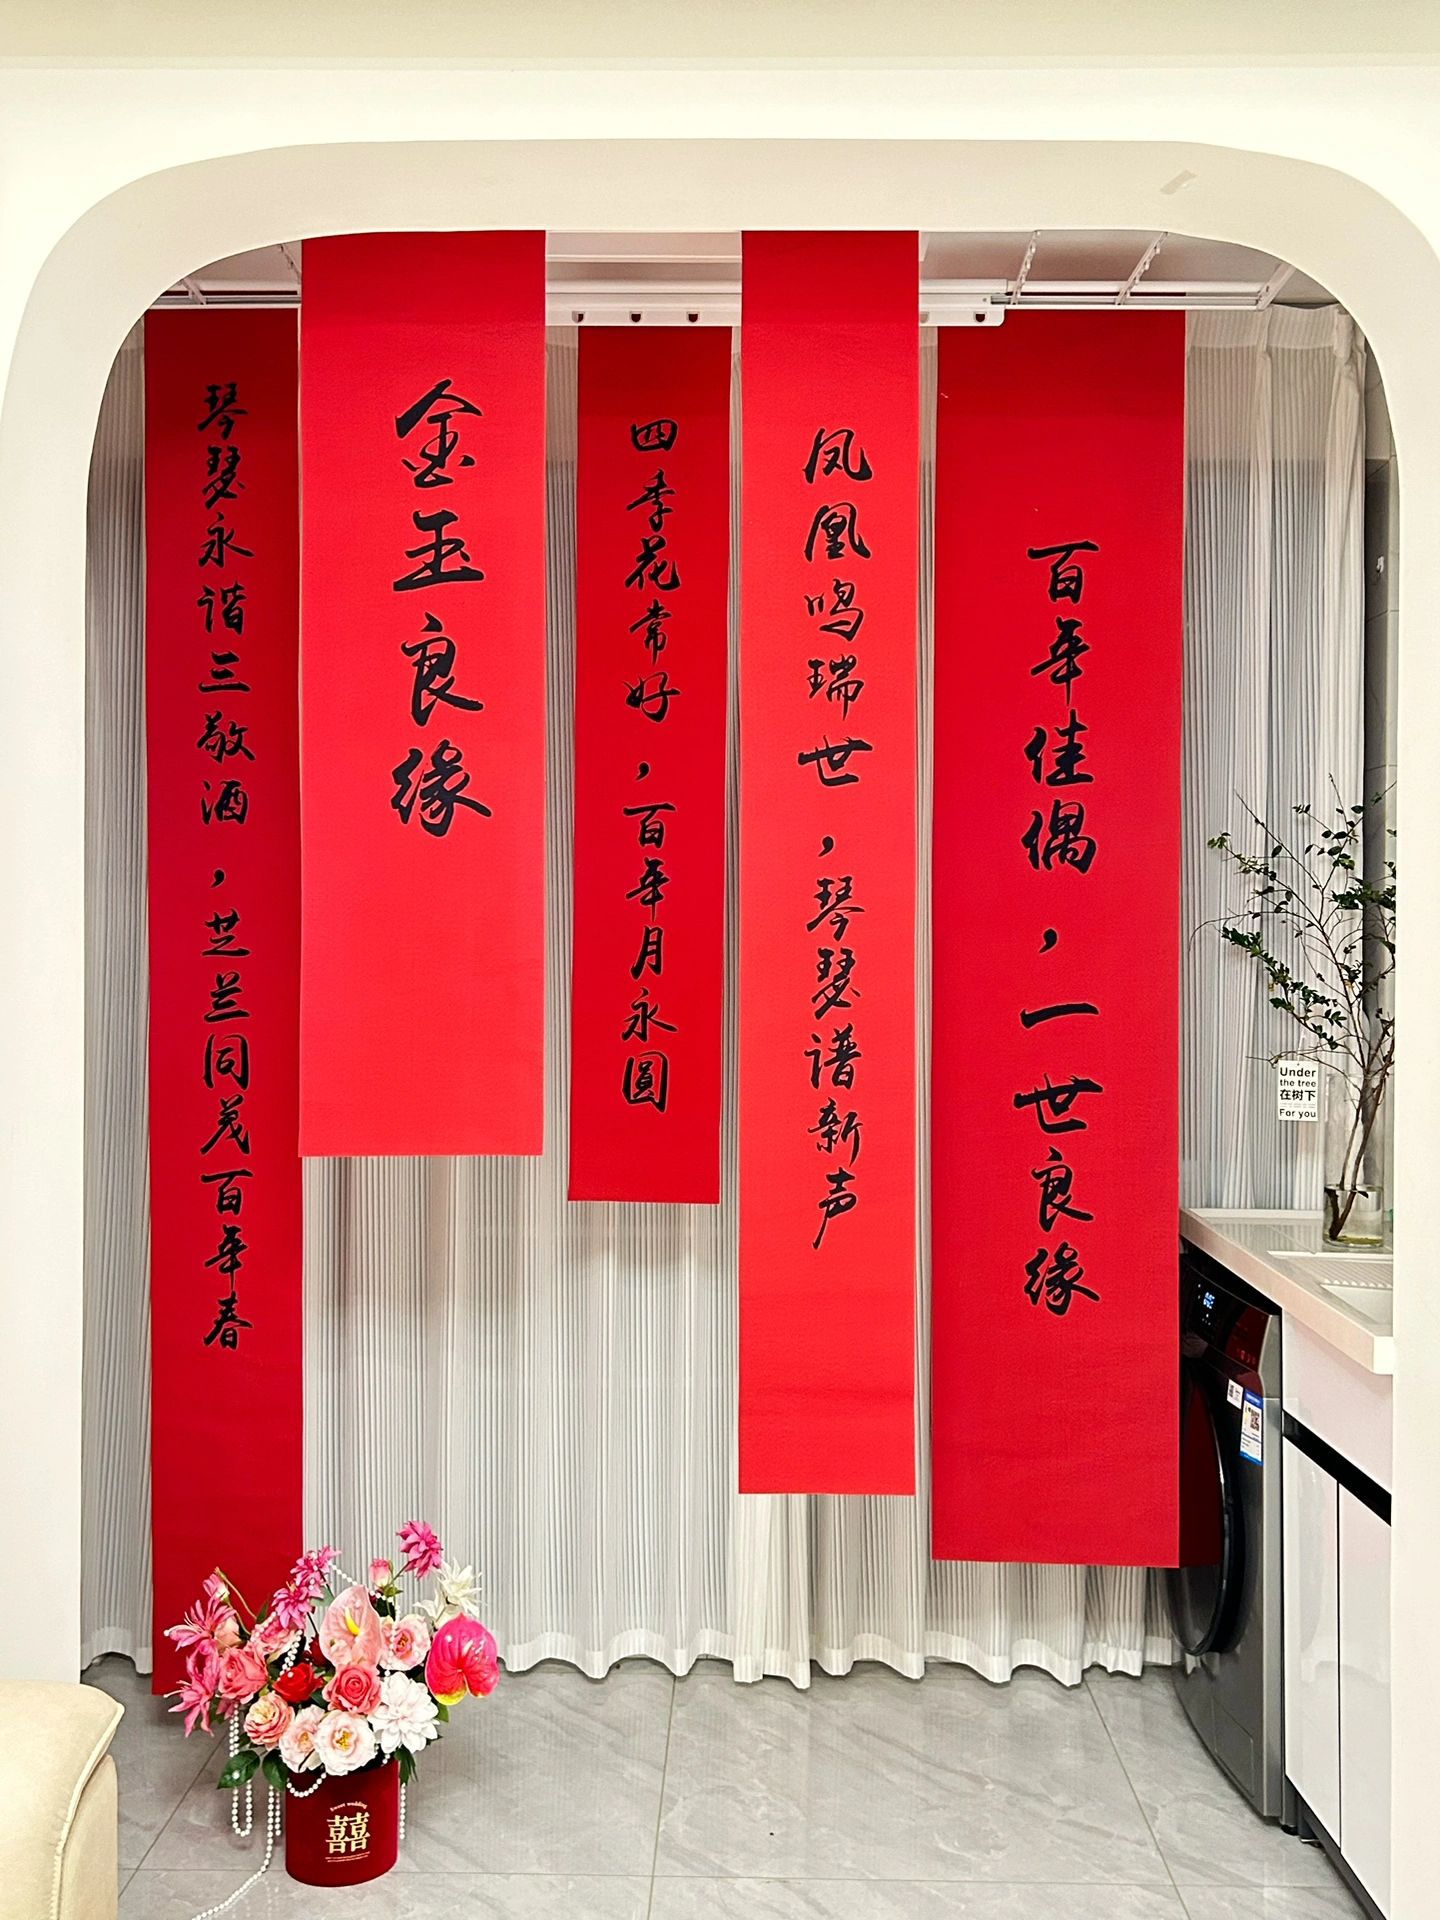 琴瑟永谐三敬酒，芝兰同茂百年春
金玉良缘
四季花常好，百年月永圆
凤凰鸣瑞世，琴瑟谱新声
百年佳偶，一世良缘
Under
the tree
在树下
For you
Sweet wedding
囍